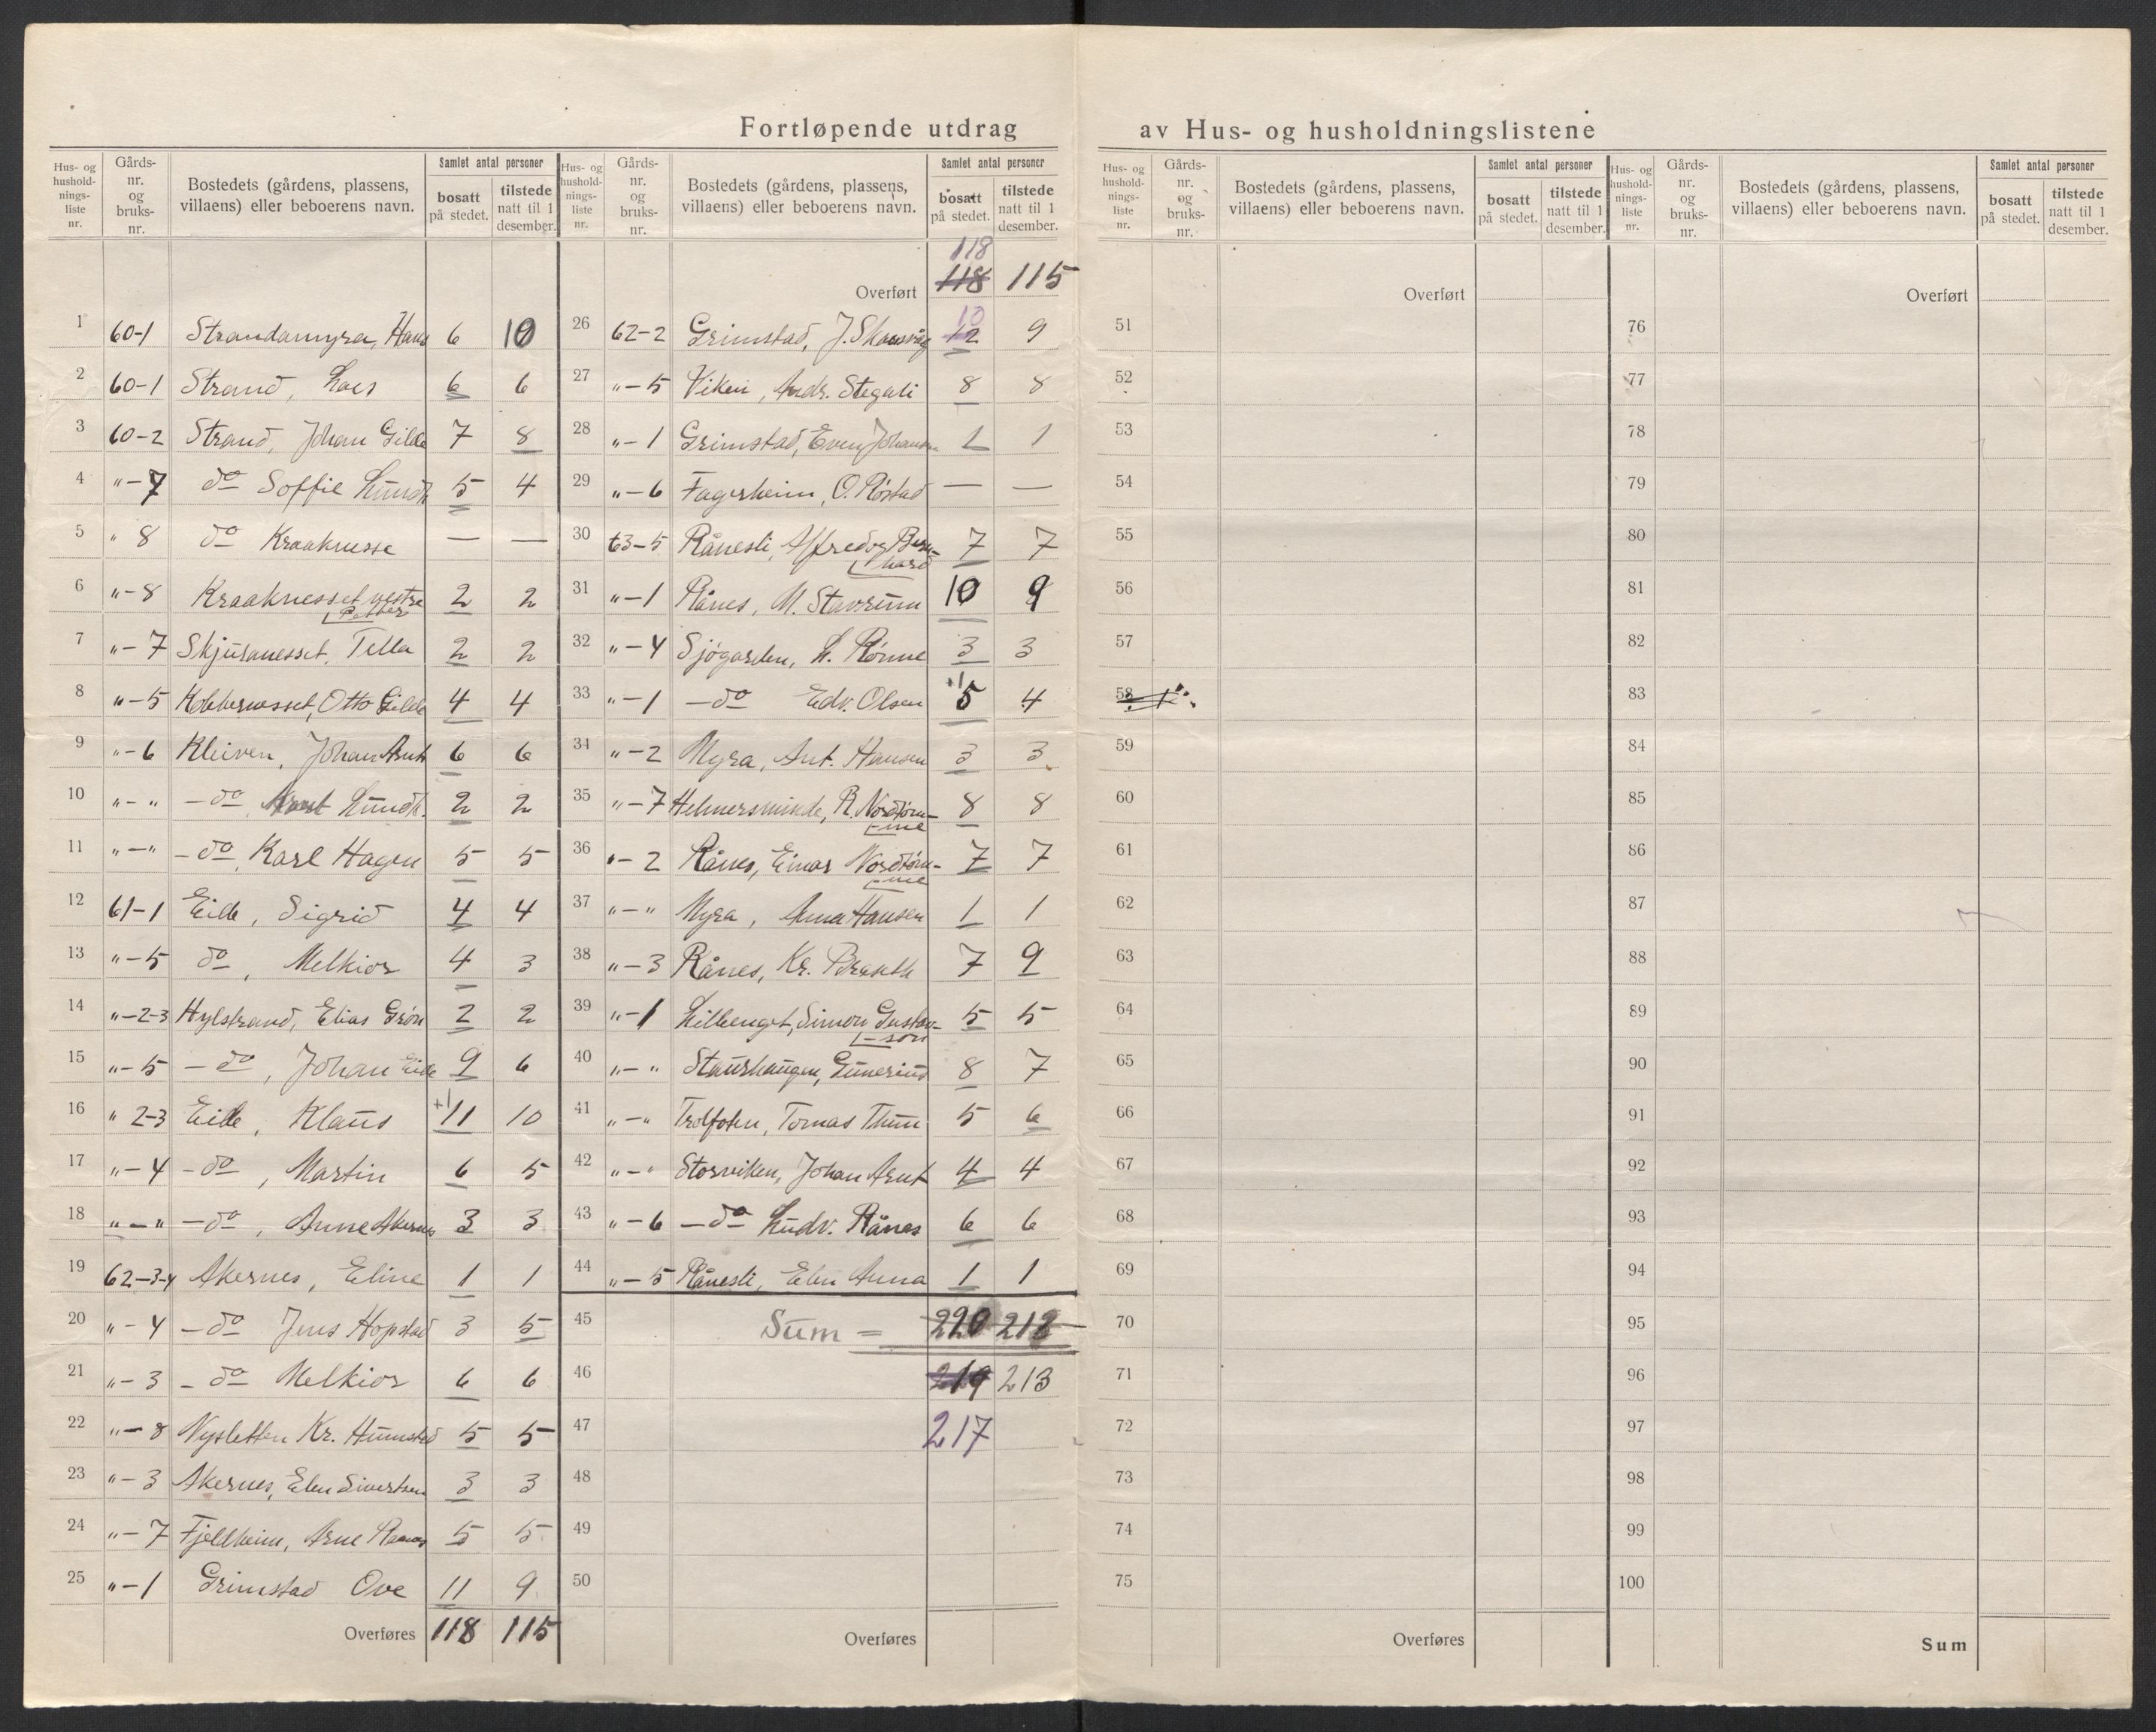 Fortløpende utdrag av Hus- og husholdningslistene
Hus- og hushold-nings-liste nr. Gårds-nr. og bruks-nr. Bostedets (gårdens, plassens, villaens) eller beboerens navn. Samlet antal personer bosatt på stedet. tilstede natt til 1 desember.
1 60-1 Strandamyra, Hans 6 10
2 60-1 Strand, Lars 6 6
3 60-2 Strand, Johan Gilde 7 8
4 "-7 do Soffie Lundh 5 4
5 " 8 do Kraaknesse — —
6 "-8 Kraaknesset vestre Petter 2 2
7 "-7 Skjüranesset, Tella 2 2
8 "-5 Kobbernesset, Otto Gilde 4 4
9 "-6 Kleiven, Johan Arnt 6 6
10 "-" -do Arnt Lundh. 2 2
11 "-" -do, Karl Hagen 5 5
12 61-1 Eide, Sigrid 4 4
13 "-5 do, Melkior 4 3
14 "-2-3 Hylstrand, Elias Grön 2 2
15 "-5 -do, Johan Eide 9 6
16 " 2-3 Eide, Klaus +1 11 10
17 "-4 -do, Martin 6 5
18 "-" -do, Anne Akernes 3 3
19 62-3-4 Akernes, Eline 1 1
20 "-4 -do Jens Hopstad 3 5
21 "-3 -do Melkior 6 6
22 "-8 Nysletten Kr. Hümstad 5 5
23 "-3 Akernes, Elen Sivertsen 3 3
24 "-7 Fjeldheim, Arne Raanes 5 5
25 "-1 Grimstad Ove 11 9
Overføres 118 115
Hus- og hushold-nings-liste nr. Gårds-nr. og bruks-nr. Bostedets (gårdens, plassens, villaens) eller beboerens navn. Samlet antal personer bosatt på stedet. tilstede natt til 1 desember.
118
Overført 118 115
10
26 62-2 Grimstad, J. Skonsvåg 12 9
27 "-5 Viken, Andr. Stegali 8 8
28 "-1 Grimstad, Even Johansen 1 1
29 "-6 Fagerheim, O. Röstad — —
30 63-5 Rånesli, Alfred og Bern-hard 7 7
31 "-1 Rånes, M. Stavrum 10 9
32 "-4 Sjögarden, L. Rönne 3 3
33 "-1 -do Edv. Olsen +1 5 4
34 "-2 Myra, Ant. Hansen 3 3
35 "-7 Helmersminde, R. Nordtöm-me 8 8
36 "-2 Rånes, Einar Nordtöm-me 7 7
37 "-" Myra, Anna Hansen 1 1
38 "-3 Rånes, Kr. Brækk 7 9
39 "-1 Lilleenget, Simon Gustav-son 5 5
40 "-" Staurhaugen, Gunerius 8 7
41 "-" Trolfoten, Tomas Thun 5 6
42 "-" Storviken, Johan Arnt 4 4
43 "-6 -do Ludv. Rånes 6 6
44 "-5 Rånesli, Elen Anna 1 1
45 Sum = 220 212
46 219 213
47 217
48
49
50
Overføres
Hus- og hushold-nings-liste nr. Gårds-nr. og bruks-nr. Bostedets (gårdens, plassens, villaens) eller beboerens navn. Samlet antal personer bosatt på stedet. tilstede natt til 1 desember.
Overført
51
52
53
54
55
56
57
58
59
60
61
62
63
64
65
66
67
68
69
70
71
72
73
74
75
Overføres
Hus- og hushold-nings-liste nr. Gårds-nr. og bruks-nr. Bostedets (gårdens, plassens, villaens) eller beboerens navn. Samlet antal personer bosatt på stedet. tilstede natt til 1 desember.
Overført
76
77
78
79
80
81
82
83
84
85
86
87
88
89
90
91
92
93
94
95
96
97
98
99
100
Sum